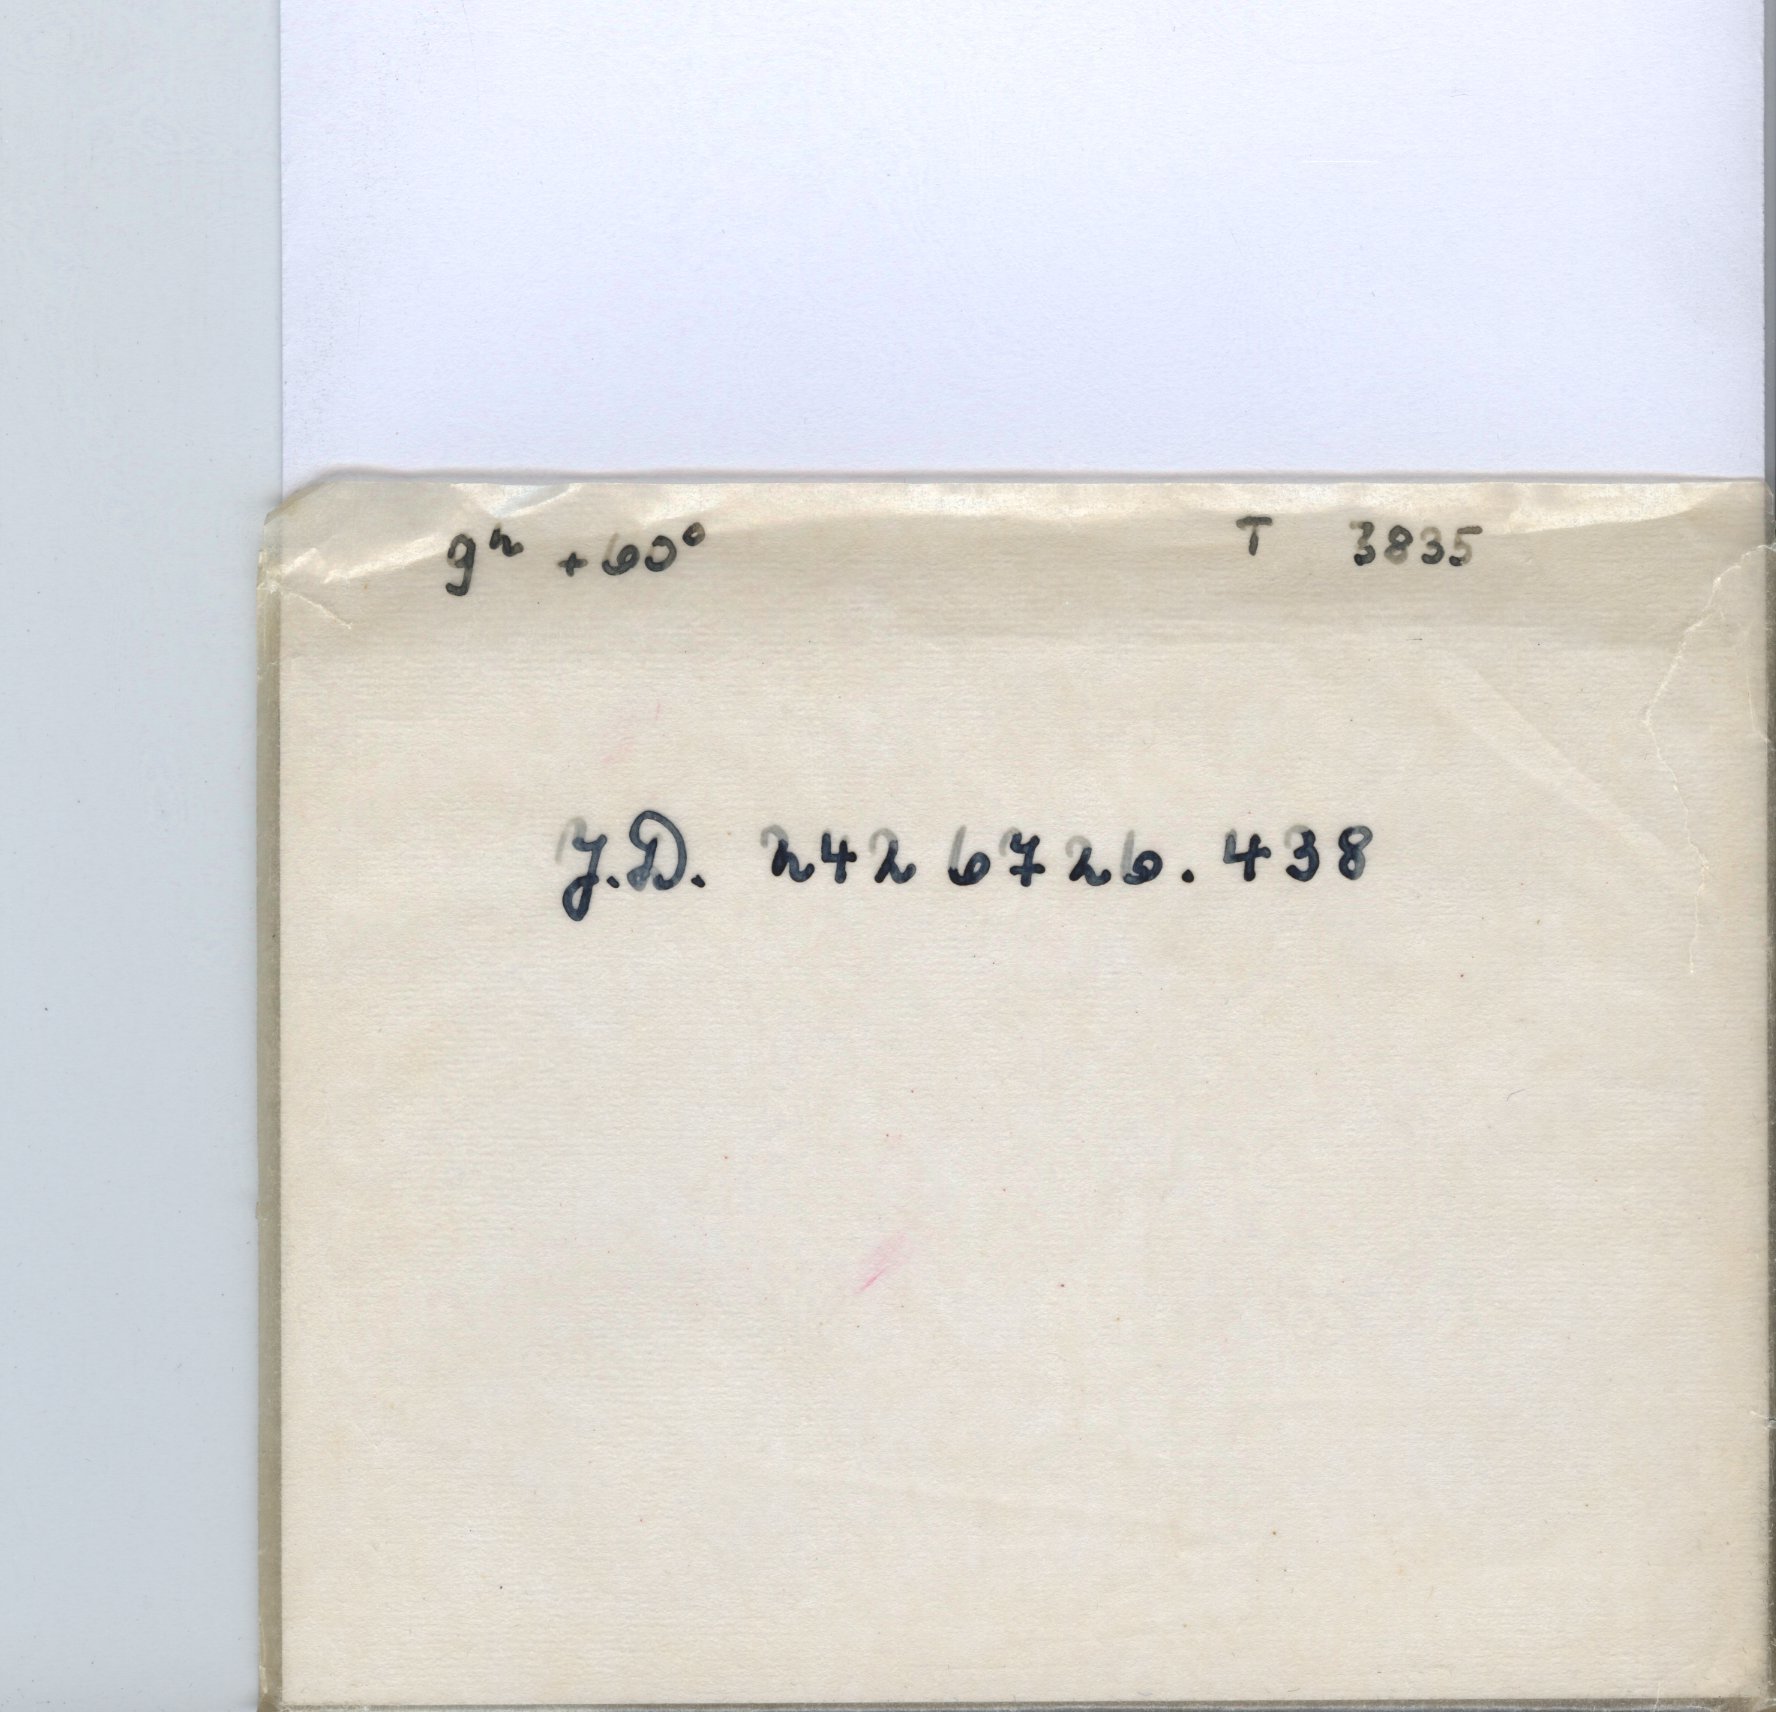 9ʰ +60° T 3835
J.D. 242 6726.438